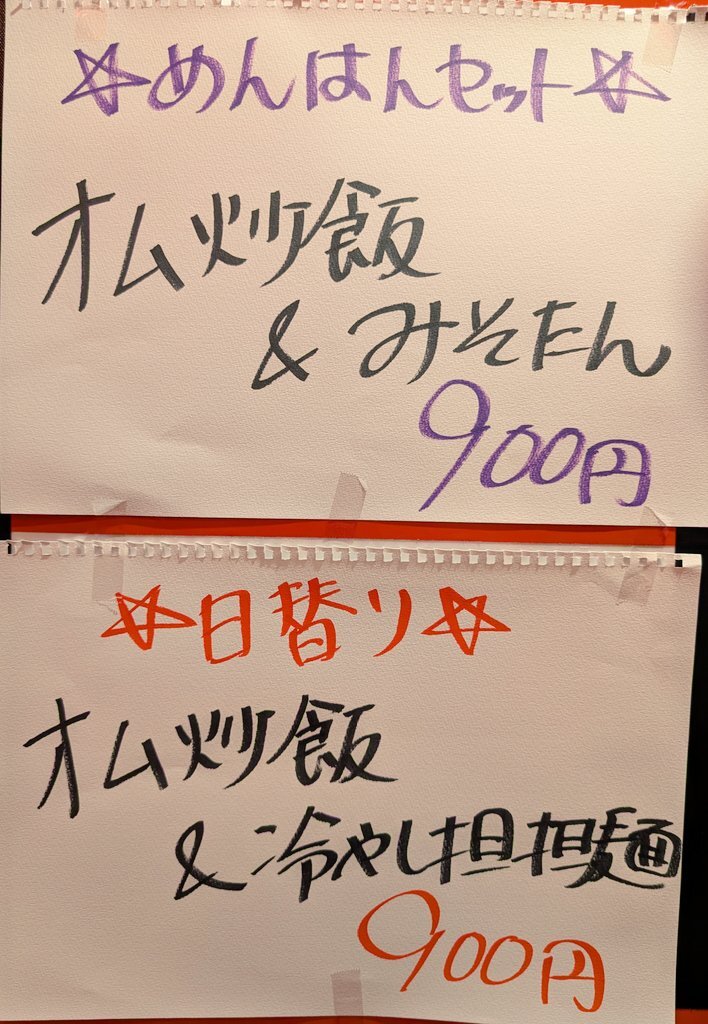 ☆めんはんセット☆
オム炒飯
&みそたん
900円
☆日替り☆
オム炒飯
&冷やし担担麺
900円